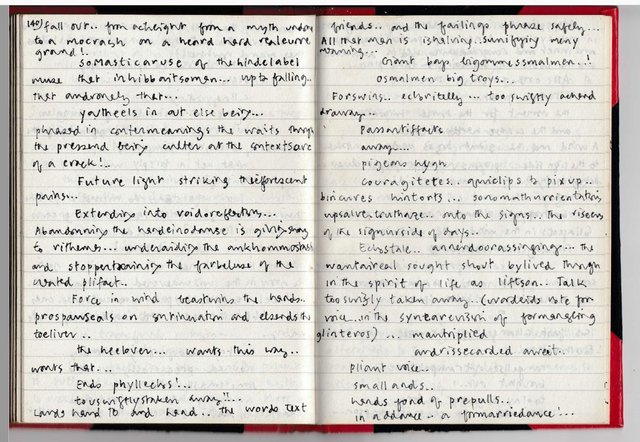 140) fall out.. from acheight from a myth undone
to a mocrash on a heard hard realeurre
ground!..
somasticaruse of the hindelabel
muse that inhibbaitsomen... upto falling..
that andronely that...
youtheels in out else being...
phrased in contermeanings the waits through
the pressend being culter at the contextsarc
of a crack!..
Future light striking theefforescent
pains...
Extending into voidoreflections...
Abandonning the herdeinodanse is giving away
to rithemes... underaiding the ankhommostasis
and stoppertraining the farbeluse of the
creatkd plifact..
Force in wind beasturns the hands..
prospawnseals on continuation and elsends the
toeliver..
the heelover... wants this way..
wants that...
Ends phyllechs!...
touswiftlystaken away!!..
Lands hand to and head.. the words text
friends.. and the failings phrase safely...
All that men is ishelving..sunifying meny
waning...
Giant bap bigommessmalmen..!
osmalmen big troys...
Forswins.. eclbritelly... too swiftly achead
draway..
Passantiffacts
away...
pigems hygh
couragitetes.. quiclips to pixup..
bincurves hintorts... sonomathurrientations
upsalve.truthaze.. onto the signs... the riseens
of the signurside of days..
Echostale.. annerdoorassinging... the
wantaireal sought shout bylived through
in the spirit of life as liftson.. Talk
tooswiftly taken away.. (wordeids rote for
voice..in the syntearcvism of formangleing
glinteros)... mantriplied
andrissecarded await..
pliant voice..
small ands..
hands fond of prepulls..
in addance.. a formarriedance!...